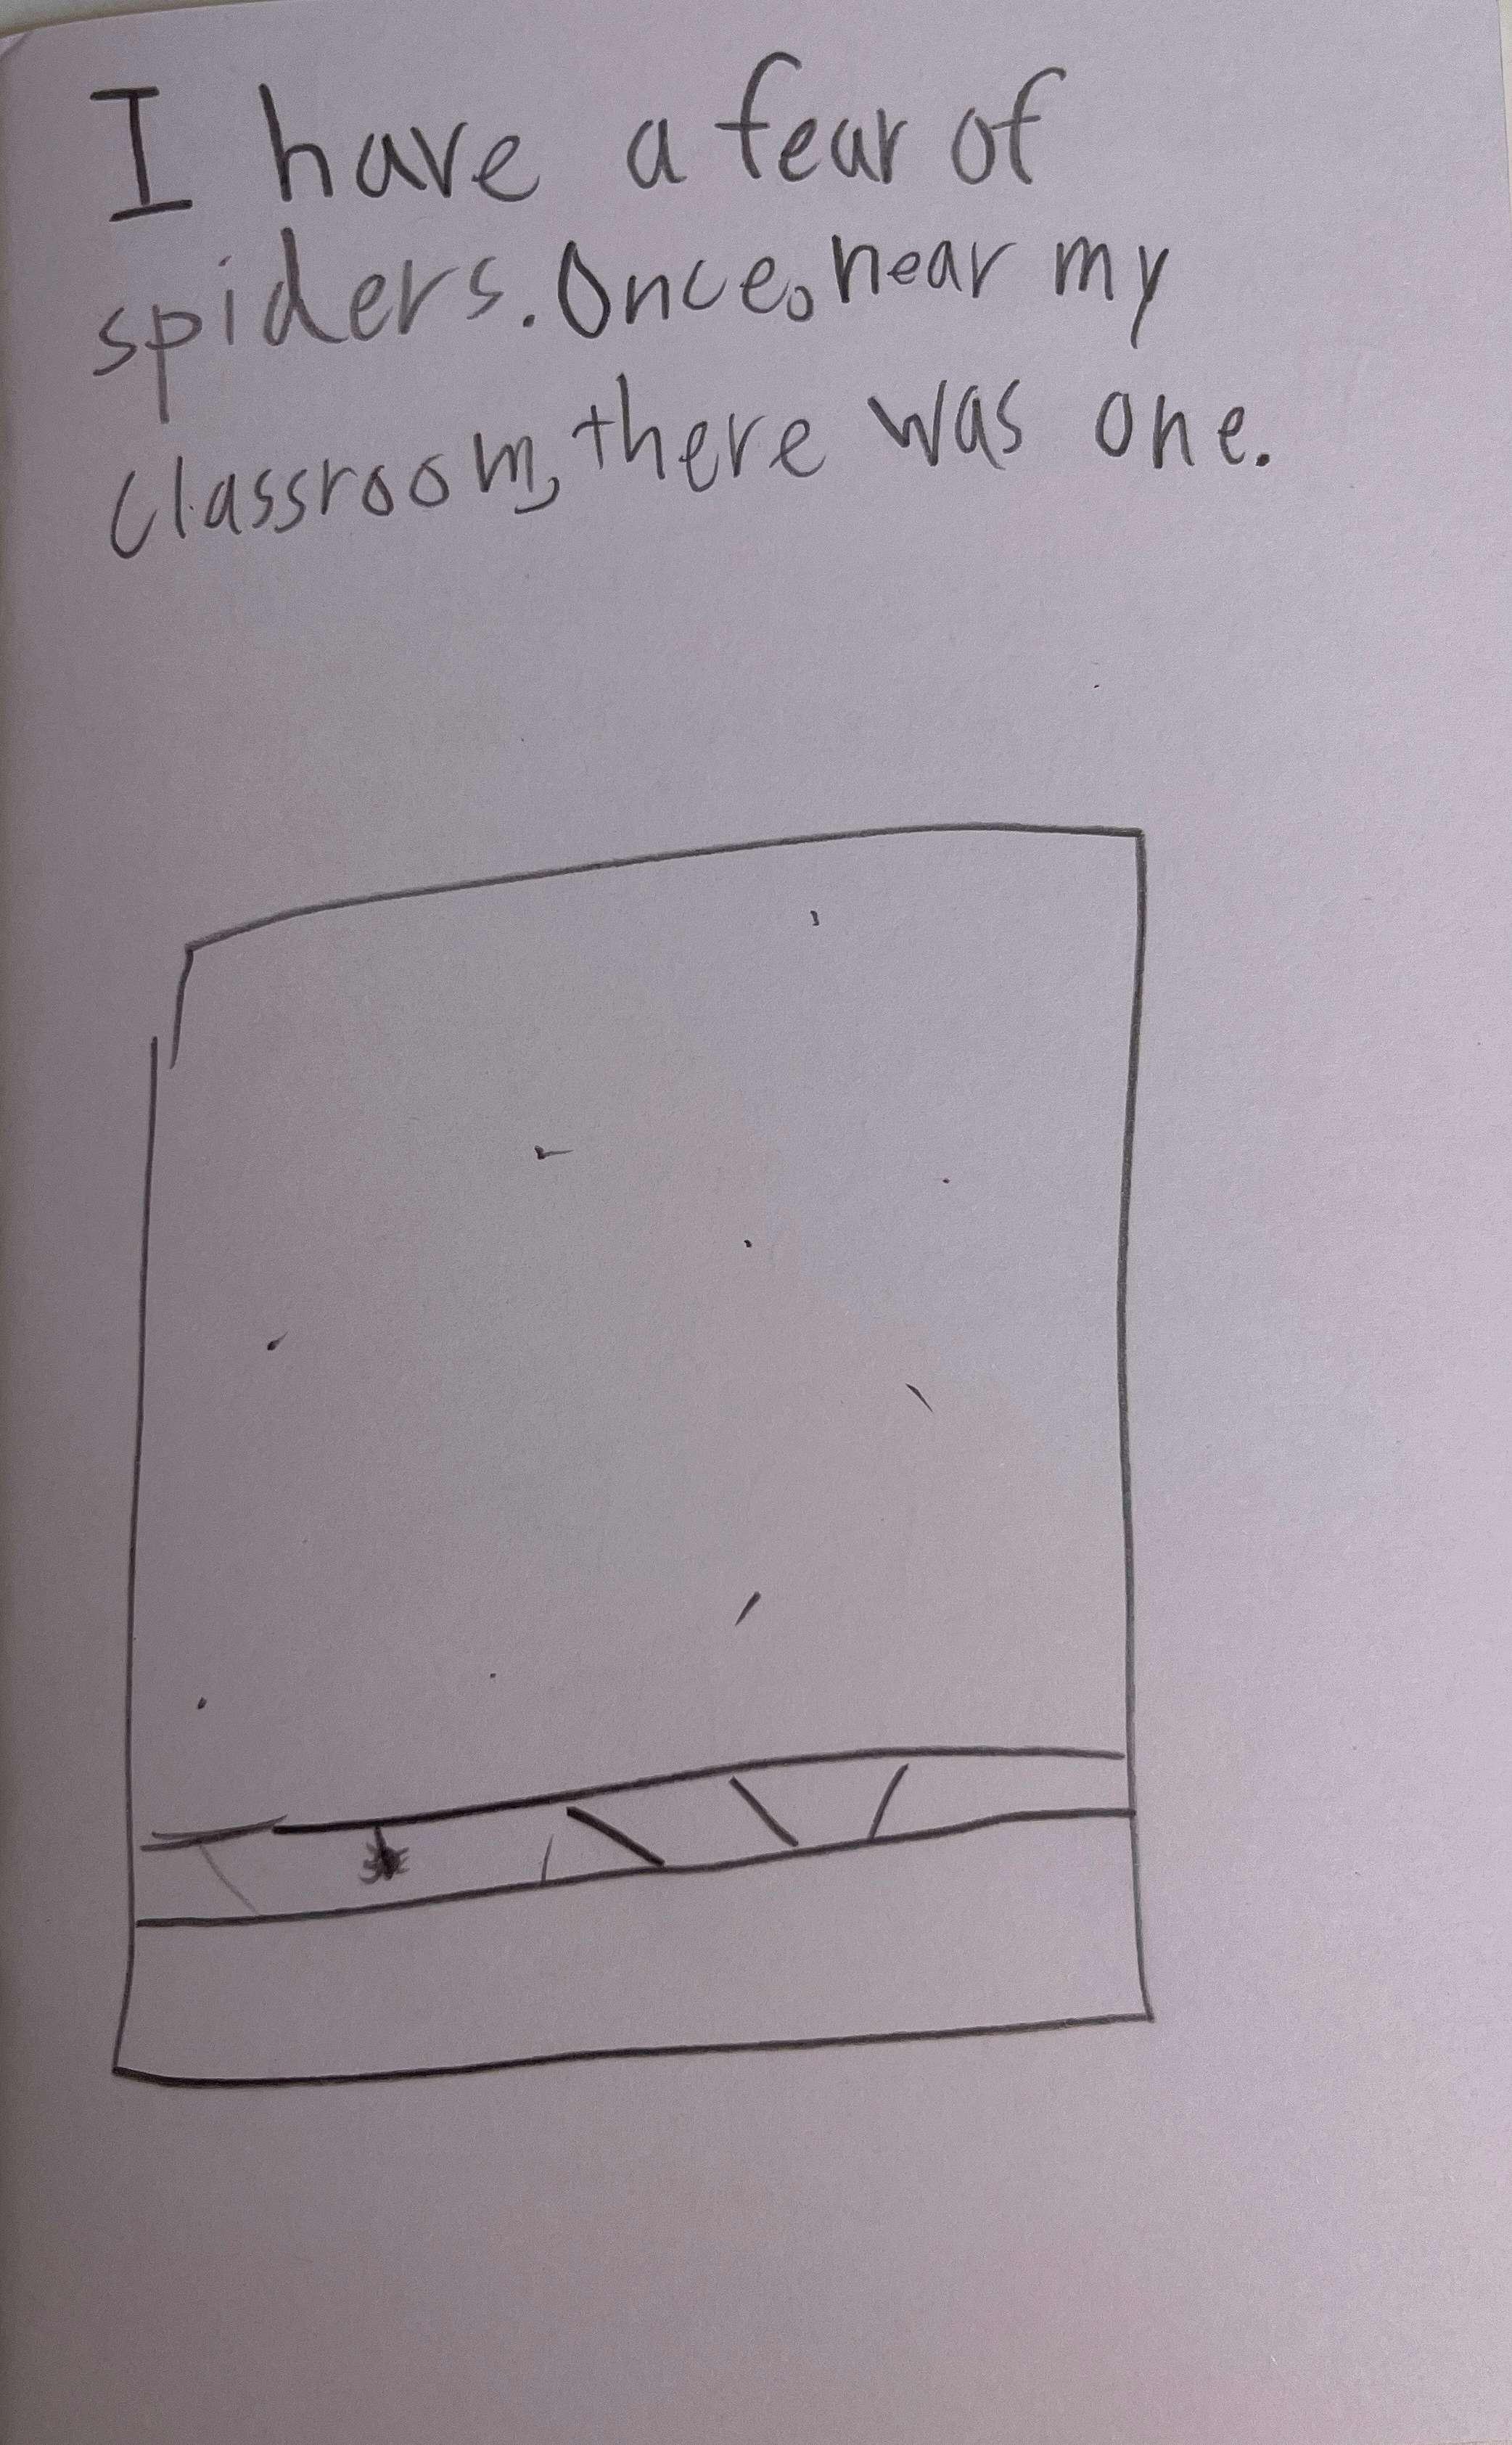 I have a fear of
spiders. Once, near my
classroom, there was one.